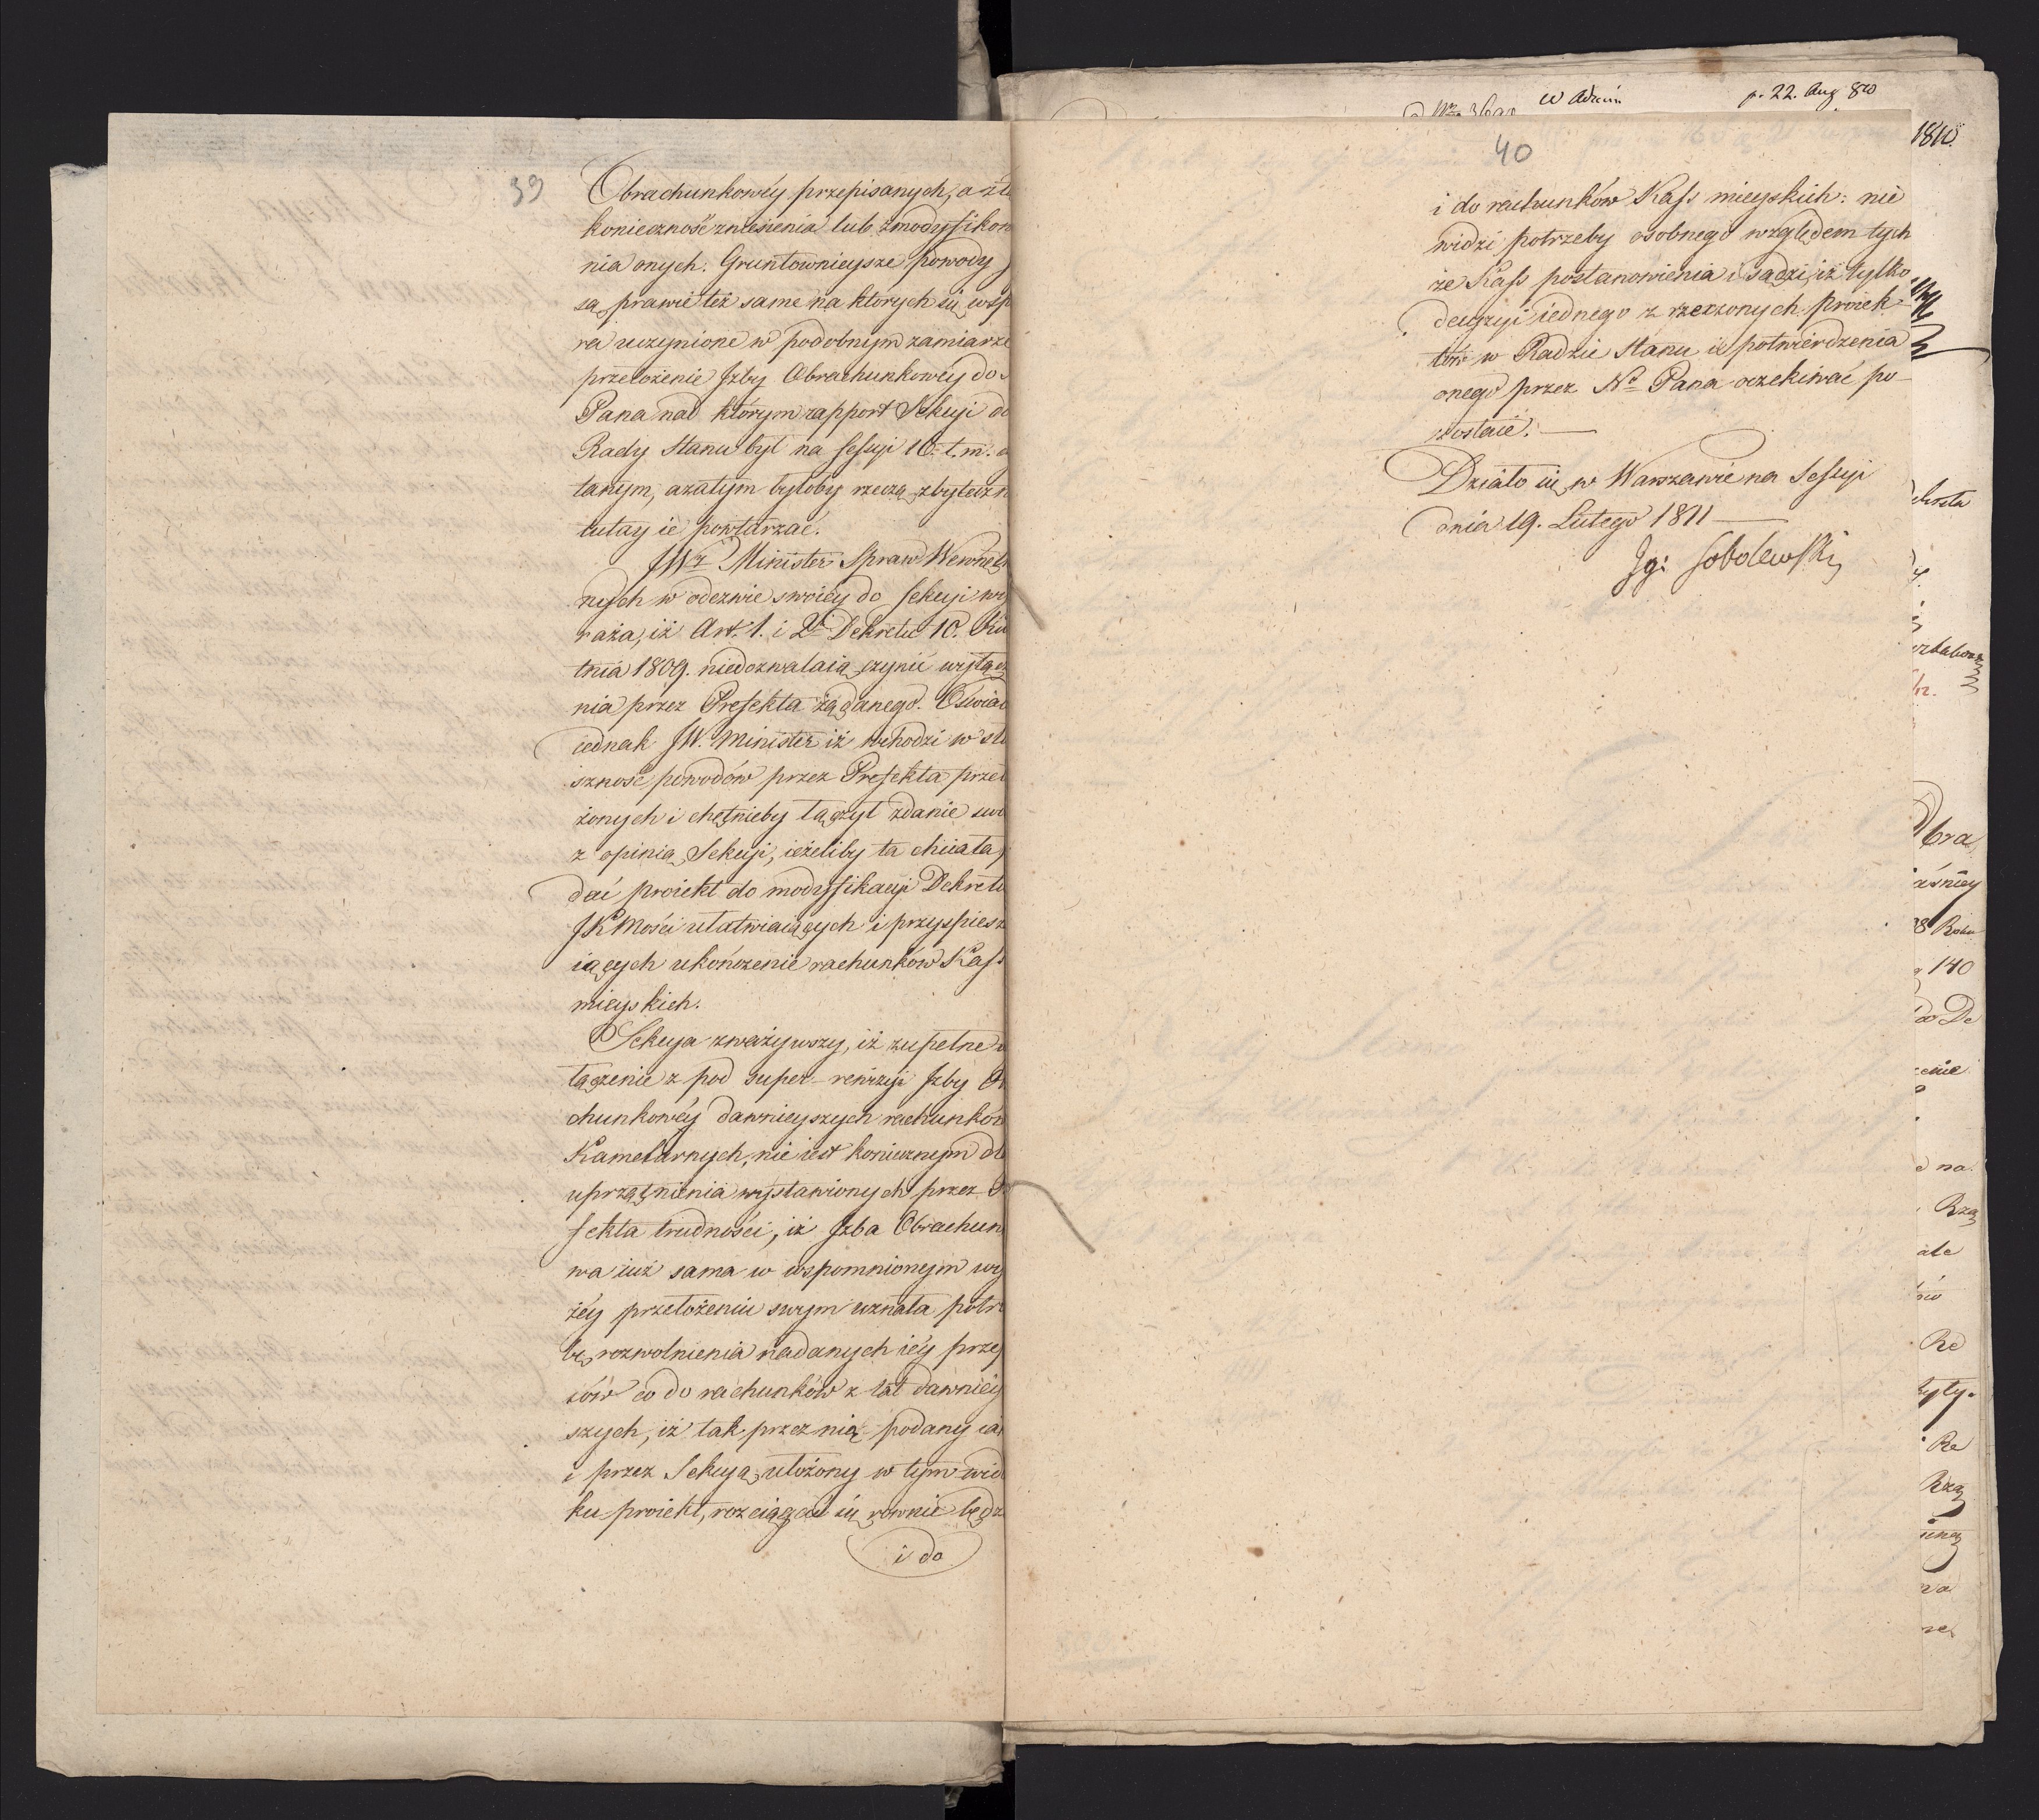 39
Obrachunkowéy przepisanych, a zt
konieczność zniesienia lub zmodyfikow
nia onych. Gruntownieysze powody
są prawie też same na których się wsp
ra uczynione w podobnym zamiarze
przełożenie Jzby Obrachunkowéy do
Pana nad którym rapport Sekcyi do
Rady Stanu był na Sessyi 16. t. m. c
tanym, azatym byłoby rzeczą zbyteczn
tutay ie powtarzać.
JWz Minister Spraw Wewnętr
nych w odezwie swoiéy do Sekcyi wy
raża, iż Art. 1. i 2. Dekretu 10. Kw
tnia 1809. niedozwalaią czynić wyłącz
nia przez Prefekta żądanego. Oświad
iednak JW. Minister iż wchodzi w słu
szność powodów przez Prefekta przeł
żonych i chętnieby łączył zdanie swo
z opinią Sekcyi, ieżeliby ta chciała
dać proiekt do modyfikacyi Dekretó
JKMości ułatwiaiących i przyspiesz
iących ukończenie rachunków Kass
mieyskich.
Sekcya zważywszy, iż zupełne w
łączenie z pod super-rewizyi Jzby Ob
chunkowéy dawnieyszych rachunków
Kamelarnych, nie iest koniecznym dl
uprzątnienia wystawionych przez P
fekta trudności, iż Jzba Obrachun
wa iuż sama w wspomnionym wy
żéy przełożeniu swym uznała potrz
bę rozwolnienia nadanych iéy przep
sów co do rachunków z lat dawniey
szych, iż tak przez nią podany iak
i przez Sekcyą ułożony w tym wid
ku proiekt, rozciągać się równie będz
i do
W Admin. p. 22. Aug 810
1810.
40
i do rachunków Kass mieyskich: nie
widzi potrzeby osobnego względem tych
że Kass postanowienia i sądzi, iż tylko
decyzyi iednego z rzeczonych proiek-
tów w Radzie Stanu i potwierdzenia
onego przez No Pana oczekiwać po-
zostaie.
Działo się w Warszawie na Sessyi
dnia 19. Lutego 1811
Jg: Sobolewski
bra
aśniey
8 Roku
140
do De
enie
na
Rzą
ale
Re
Re
Rzą